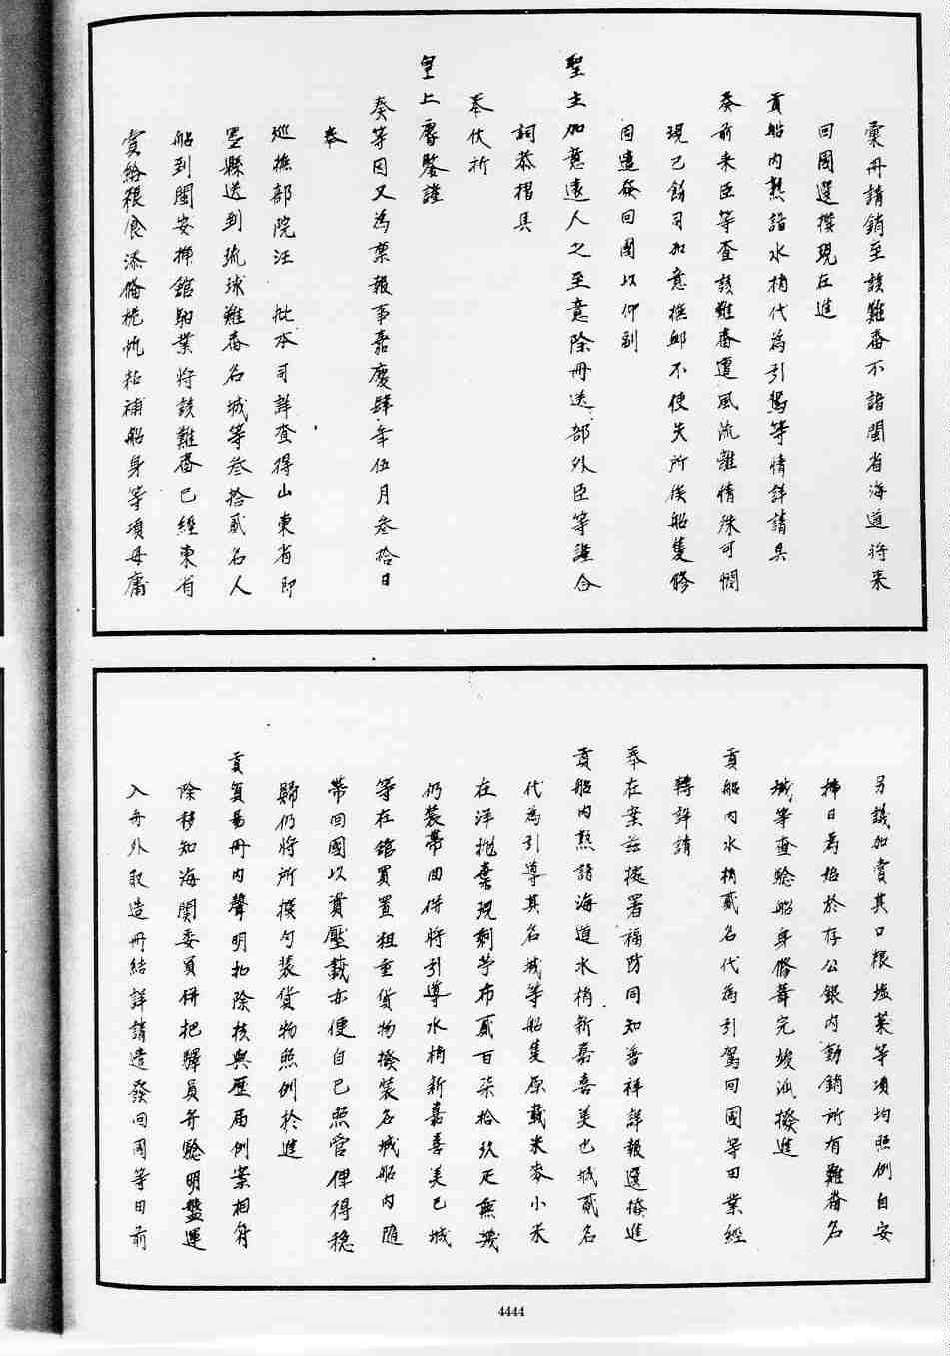 彙冊請銷至該難番不諳閩省海道將來
回國選撥現在進
貢船內熟諳水梢代為引駕等情詳請具
奏前來臣等查該難番遭風流離情殊可憫
現已飭司加意撫卹不使失所俟船隻修
固遣發回國以仰副
聖主加意遠人之至意除冊送部外臣等謹合
詞恭摺具
奏伏祈
皇上睿鑒謹
奏等因又為稟報事嘉慶肆年伍月叁拾日
奉
巡撫部院汪 批本司詳查得山東省即
墨縣送到琉球難番名城等叁拾貳名人
船到閩安挿館馹業將該難番已經東省
賞給糧食添備桅帆粘補船身等項毋庸
另議加賞其口粮塩菜等項均照例自安
挿日為始於存公銀內動銷所有難番名
城等查驗船身修葺完竣派撥進
貢船內水梢貳名代為引駕回國等由業經
轉詳請
奏在案茲據署福防同知普祥詳報選撥進
貢船內熟諳海道水梢新嘉喜美也城貳名
代為引導其名城等船隻原載米麥小米
在洋拋棄現剩苧布貳百柒拾玖疋無幾
仍裝帶回併將引導水梢新嘉喜美已城
等在館買置粗重貨物撥裝名城船內隨
帶回國以資壓載亦便自己照管俾得穩
歸仍將所撥勻裝貨物照例於進
貢貿易冊內聲明扣除核與歷届例案相符
除移知海關委員併把驛員弁驗明盤運
入舟外取造冊結詳請遣發回國等由前